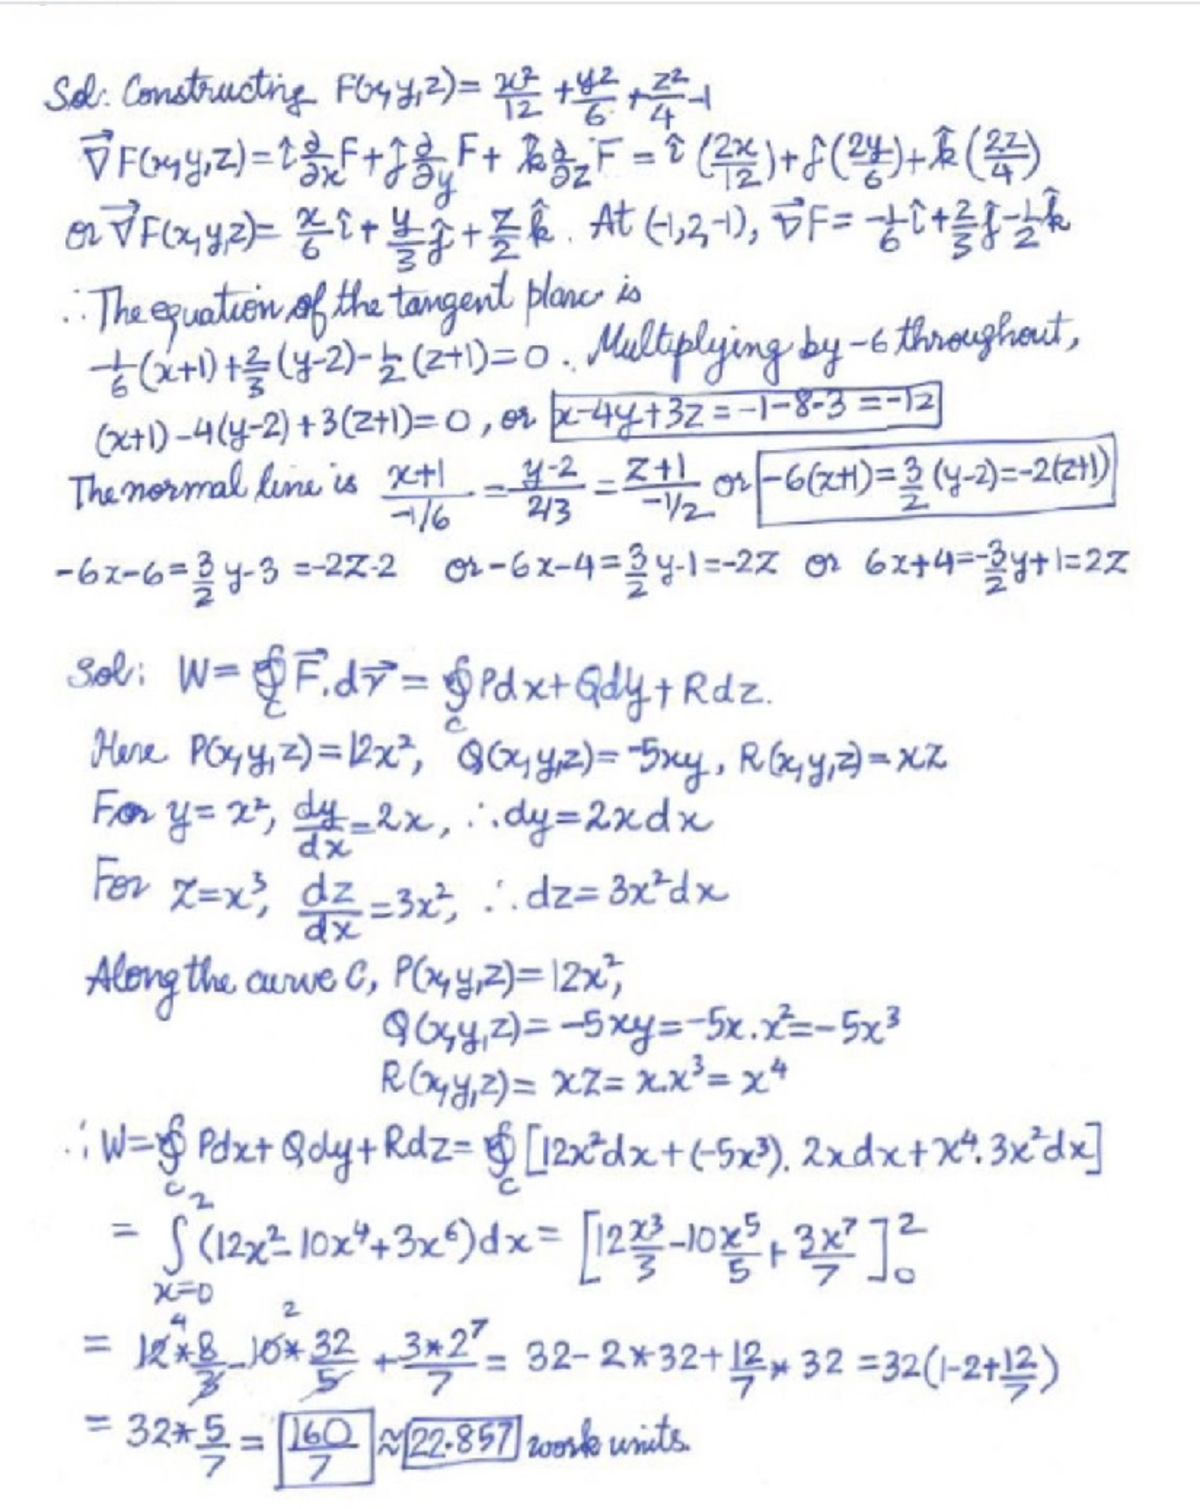 Sol: Constructing F(x,y,z)= x²/12 + y²/6 + z²/4 -1
∇⃗F(x,y,z)= î ∂/∂x F + ĵ ∂/∂y F + k̂ ∂/∂z F = î (2x/12) + ĵ (2y/6) + k̂ (2z/4)
or ∇⃗F(x,y,z)= x/6 î + y/3 ĵ + z/2 k̂. At (-1,2,-1), ∇⃗F= -1/6 î + 2/3 ĵ - 1/2 k̂
∴ The equation of the tangent plane is
-1/6 (x+1) + 2/3 (y-2) - 1/2 (z+1)=0. Multiplying by -6 throughout,
(x+1)-4(y-2)+3(z+1)=0, or x-4y+3z=-1-8-3=-12
The normal line is (x+1)/(-1/6) = (y-2)/(2/3) = (z+1)/(-1/2) or -6(x+1)= 3/2 (y-2)=-2(z+1)
-6x-6= 3/2 y-3 =-2z-2 or -6x-4= 3/2 y-1=-2z or 6x+4=-3/2 y+1=2z
Sol: W= ∮_C F⃗.dr⃗ = ∮_C Pdx+Qdy+Rdz.
Here P(x,y,z)=12x², Q(x,y,z)=-5xy, R(x,y,z)=xz
For y=x², dy/dx=2x, ∴dy=2xdx
For z=x³, dz/dx=3x², ∴dz=3x²dx
Along the curve C, P(x,y,z)=12x²,
Q(x,y,z)=-5xy=-5x.x²=-5x³
R(x,y,z)= xz= x.x³= x⁴
∴ W=∮_C Pdx+Qdy+Rdz= ∮_C [12x²dx+(-5x³).2xdx+x⁴.3x²dx]
= ∫_{x=0}^{2} (12x²-10x⁴+3x⁶)dx= [12 x³/3 -10 x⁵/5 + 3x⁷/7]₀²
= 12 4 *8/3 - 10 2 *32/5 + 3*2⁷/7 = 32-2*32+ 12/7 * 32 =32(1-2+12/7)
= 32* 5/7 = 160/7 ≈ 22.857 work units.